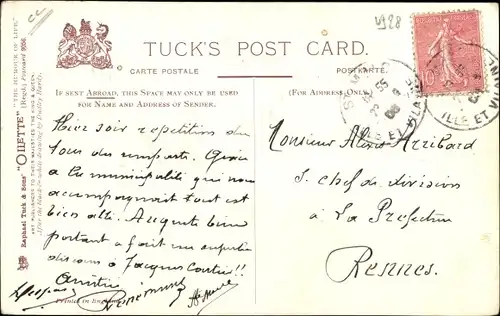 CC
y928
TUCK'S POST CARD.
CARTE POSTALE
POSTKARTE.
IF SENT ABROAD, THIS SPACE MAY ONLY BE USED
FOR NAME AND ADDRESS OF SENDER.
(FOR ADDRESS ONLY.)
Hier soir repetition du
tour des remparts. Grâce
à la municipalité qui nous
accompagnait tout est
bien allé. Auguste bien
portant a fait un superbe
discours à Jacques Cartier!!
Amitié
Printed in England
Monsieur Alexis Arribard
chef de division
à La Prefecture
Rennes.
ILLE ET VILAINE
ILLE ET VILAINE
10
Raphael Tuck & Sons' "OILETTE" [Regd.] Postcard 9096.
"THE HUMOUR OF LIFE."
ART PUBLISHERS TO THEIR MAJESTIES THE KING & QUEEN.
After the black & white drawing by Dudley Hardy.